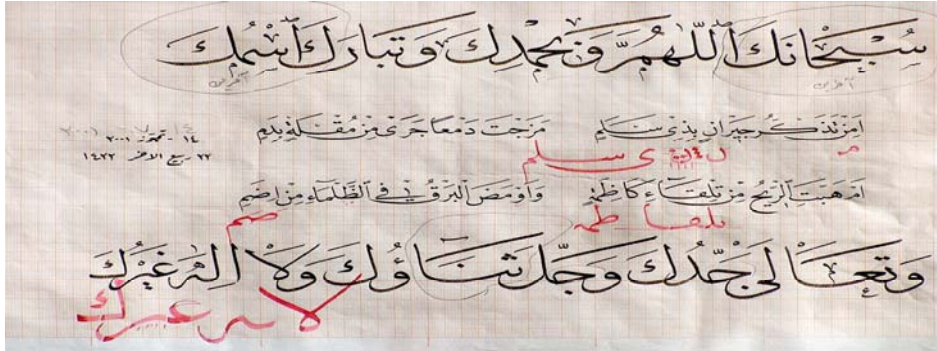 سُبْحَانَكَ اَللّٰهُمَّ وَبِحَمْدِكَ وَتَبَارَكَ اسْمُكَ
آفرين آفرين
اَمِنْ تَذَكُّرِ جِيرَانٍ بِذِي سَلَمِ مَزَجْتَ دَمْعًا جَرَى مِنْ مُقْلَةٍ بِدَمِ
١٤ - تموز ٢٠٠١
٢٢ ربيع الاخر ١٤٢٢
ن ذى سلم
اَمْ هَبَّتِ الرِّيحُ مِنْ تِلْقَاءِ كَاظِمَةٍ وَاَوْمَضَ الْبَرْقُ فِي الظَّلْمَاءِ مِنْ اِضَمِ
تلقا ظمه ضم
وَتَعَالَى جَدُّكَ وَجَلَّ ثَنَاؤُكَ وَلَا اِلٰهَ غَيْرُكَ
لا غيرك